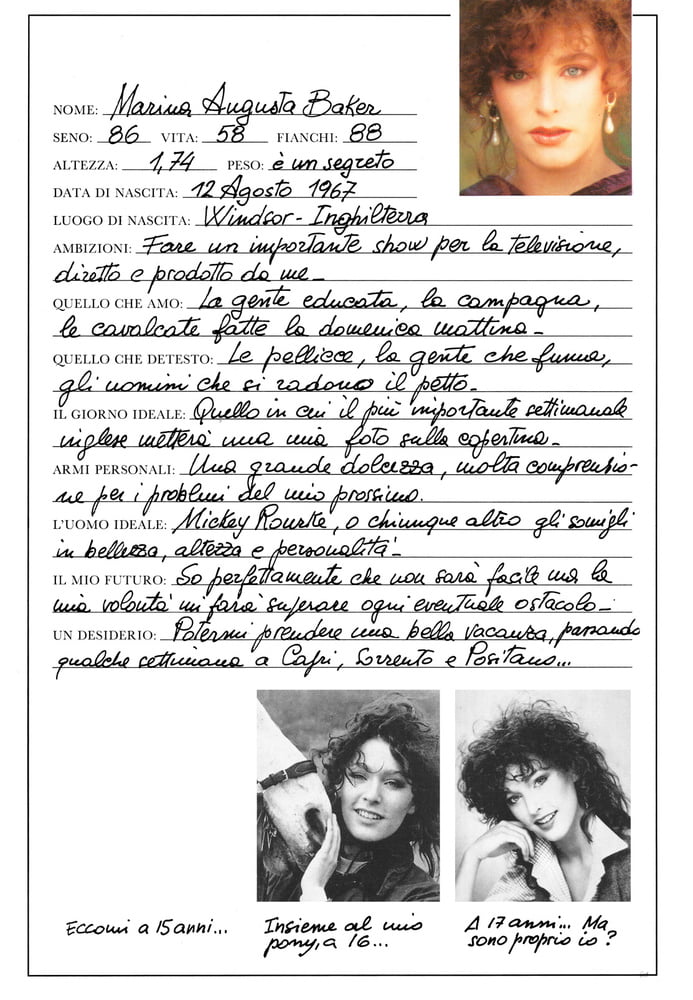 NOME: Marina Augusta Baker
SENO: 86 VITA: 58 FIANCHI: 88
ALTEZZA: 1,74 PESO: è un segreto
DATA DI NASCITA: 12 Agosto 1967
LUOGO DI NASCITA: Windsor - Inghilterra
AMBIZIONI: Fare un importante show per la televisione,
diretto e prodotto da me -
QUELLO CHE AMO: La gente educata, la campagna,
le cavalcate fatte la domenica mattina -
QUELLO CHE DETESTO: Le pellicce, la gente che fuma,
gli uomini che si radono il petto -
IL GIORNO IDEALE: Quello in cui il più importante settimanale
inglese metterà una mia foto sulla copertina -
ARMI PERSONALI: Una grande dolcezza, molta comprensio-
ne per i problemi del mio prossimo.
L'UOMO IDEALE: Mickey Rourke, o chiunque altro gli somigli
in bellezza, altezza e personalità -
IL MIO FUTURO: So perfettamente che non sarà facile ma la
mia volontà mi farà superare ogni eventuale ostacolo -
UN DESIDERIO: Potermi prendere una bella vacanza, passando
qualche settimana a Capri, Sorrento e Positano...
Eccomi a 15 anni...
Insieme al mio
pony, a 16...
A 17 anni... Ma
sono proprio io?